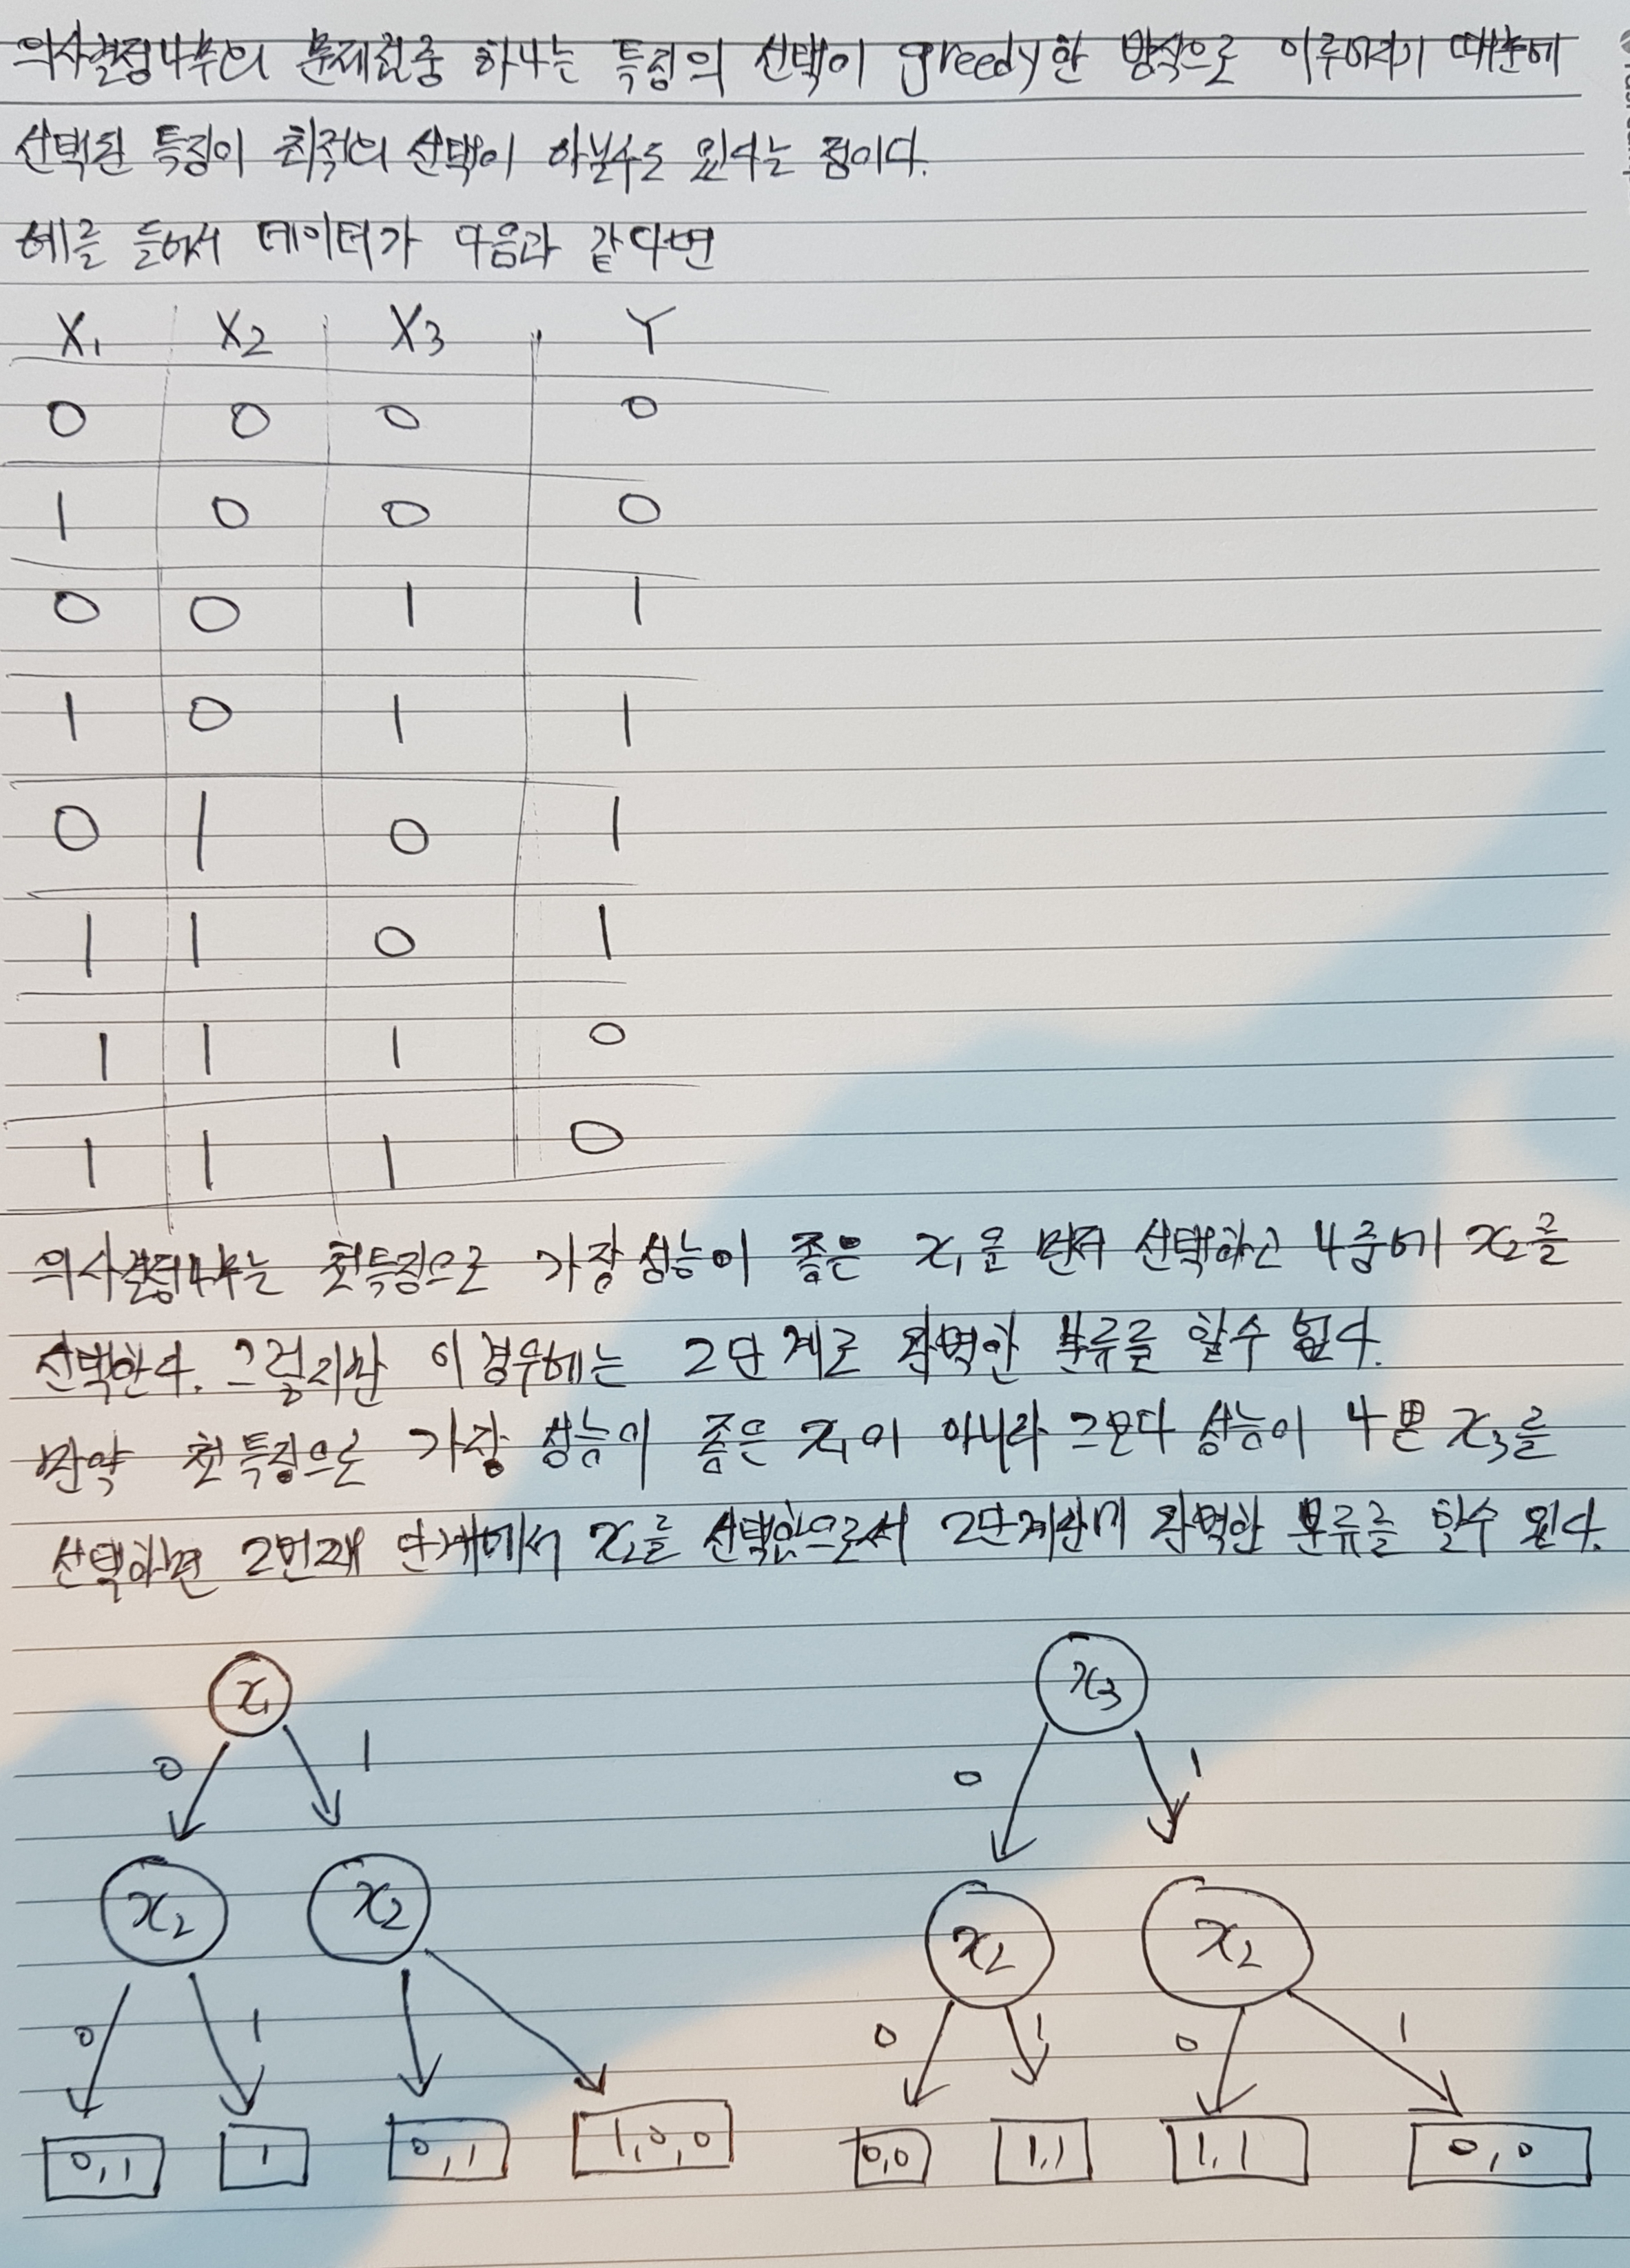 의사결정나무의 문제점중 하나는 특징의 선택이 greedy한 방식으로 이루어지기 때문에
선택된 특징이 최적의 선택이 아닐수도 있다는 점이다.
예를 들어서 데이터가 다음과 같다면
X₁ X₂ X₃ Y
0 0 0 0
1 0 0 0
0 0 1 1
1 0 1 1
0 1 0 1
1 1 0 1
1 1 1 0
1 1 1 0
의사결정나무는 첫특징으로 가장 성능이 좋은 x₁을 먼저 선택하고 나중에 x₂를
선택한다. 그렇지만 이 경우에는 2단계로 완벽한 분류를 할수 없다.
만약 첫특징으로 가장 성능이 좋은 x₁이 아니라 그보다 성능이 나쁜 x₃를
선택하면 2번째 단계에서 x₂를 선택함으로서 2단계만에 완벽한 분류를 할수 있다.
x₁ x₃
0 1 0 1
x₂ x₂ x₂ x₂
0 1 0 1 0 1
0,1 1 0,1 1,0,0 0,0 1,1 1,1 0,0